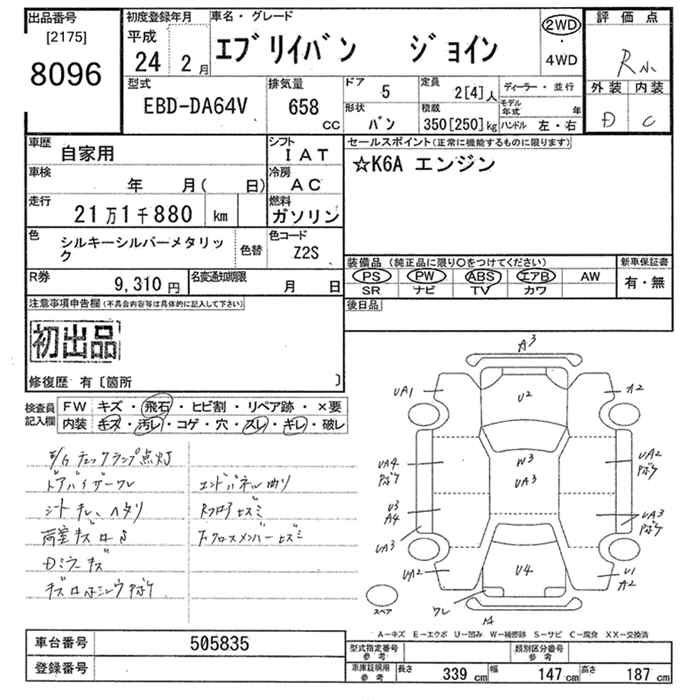 出品番号
[2175]
8096
初度登録年月
平成
24 2月
車名・グレード
エブリイバン ジョイン
2WD
・
4WD
評価点
R小
外装 内装
D C
型式
EBD-DA64V
排気量
658
CC
ドア
5
形状
バン
定員
2[4]人
積載
350[250]kg
ディーラー・並行
モデル年式 年
ハンドル 左・右
車歴
自家用
シフト
IAT
車検
年 月( 日)
冷房
AC
走行
21万1千880 km
燃料
ガソリン
色
シルキーシルバーメタリック
色替
色コード
Z2S
R券
9,310円
名変通知期限
月 日
セールスポイント(正常に機能するものに限ります)
☆K6A エンジン
装備品(純正品に限り○をつけてください)
PS PW ABS エアB AW
SR ナビ TV カワ
新車保証書
有・無
後日品
注意事項申告欄(不具合内容等は具体的に記入して下さい)
初出品
修復歴 有〔箇所 〕
検査員記入欄
FW キズ・飛石・ヒビ割・リペア跡・×要
内装 キズ・汚レ・コゲ・穴・スレ・キレ・破レ
E/Gチェックランプ点灯
ドアバイザーワレ
シートキレ、ヘタリ
荷室キズ
Dミラーキズ
エンドパネル曲リ
A3
UA1
U2
A2
UA4
W3
UA3
UA2
U3
A4
UA3
UA3
UA2
U4
U1
A2
ワレ
スペア
A-キズ E-エクボ U-凹み W-補修跡 S-サビ C-腐食 XX-交換済
車台番号
505835
登録番号
型式指定番号
参考
類別区分番号
参考
車庫証明用
参考
長さ 339 cm 幅 147 cm 高さ 187 cm